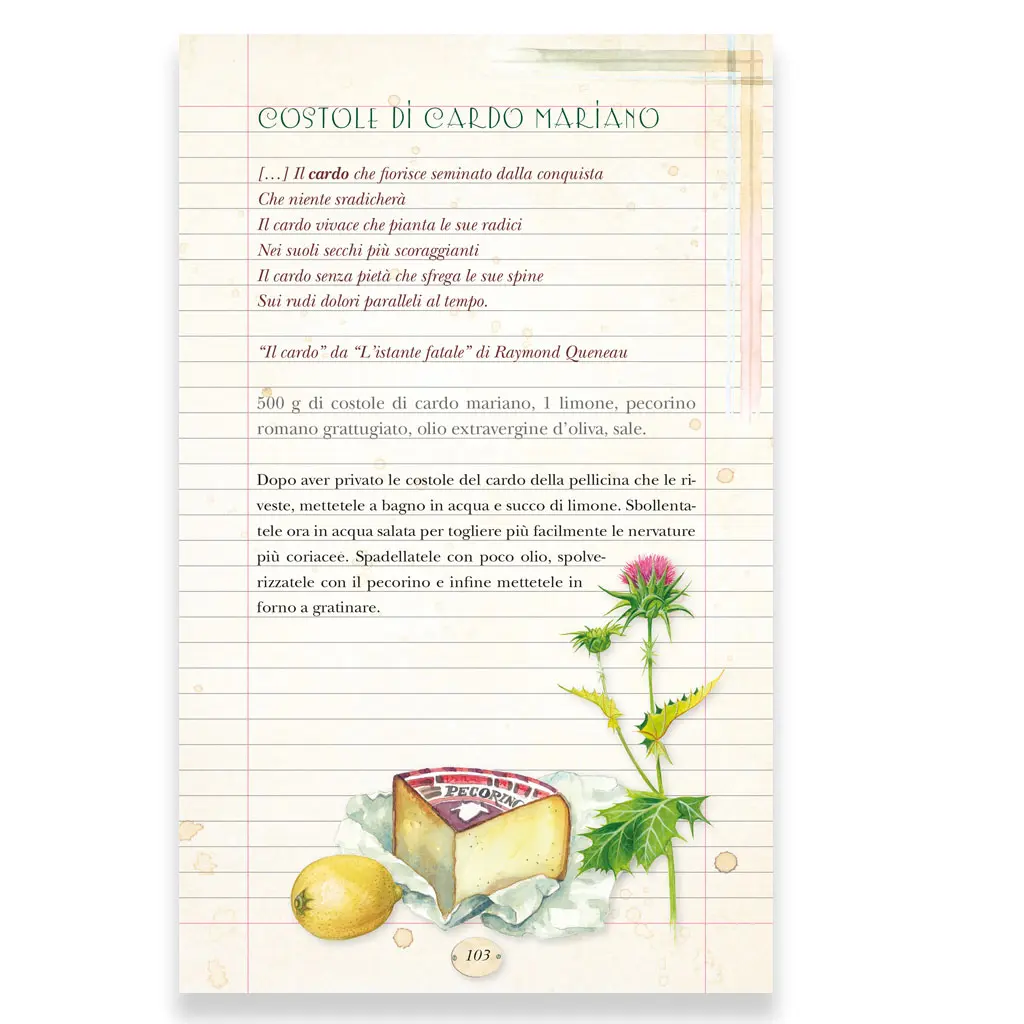 COSTOLE DI CARDO MARIANO
[…] Il cardo che fiorisce seminato dalla conquista
Che niente sradicherà
Il cardo vivace che pianta le sue radici
Nei suoli secchi più scoraggianti
Il cardo senza pietà che sfrega le sue spine
Sui rudi dolori paralleli al tempo.
“Il cardo” da “L’istante fatale” di Raymond Queneau
500 g di costole di cardo mariano, 1 limone, pecorino
romano grattugiato, olio extravergine d’oliva, sale.
Dopo aver privato le costole del cardo della pellicina che le ri-
veste, mettetele a bagno in acqua e succo di limone. Sbollenta-
tele ora in acqua salata per togliere più facilmente le nervature
più coriacee. Spadellatele con poco olio, spolve-
rizzatele con il pecorino e infine mettetele in
forno a gratinare.
PECORINO
103